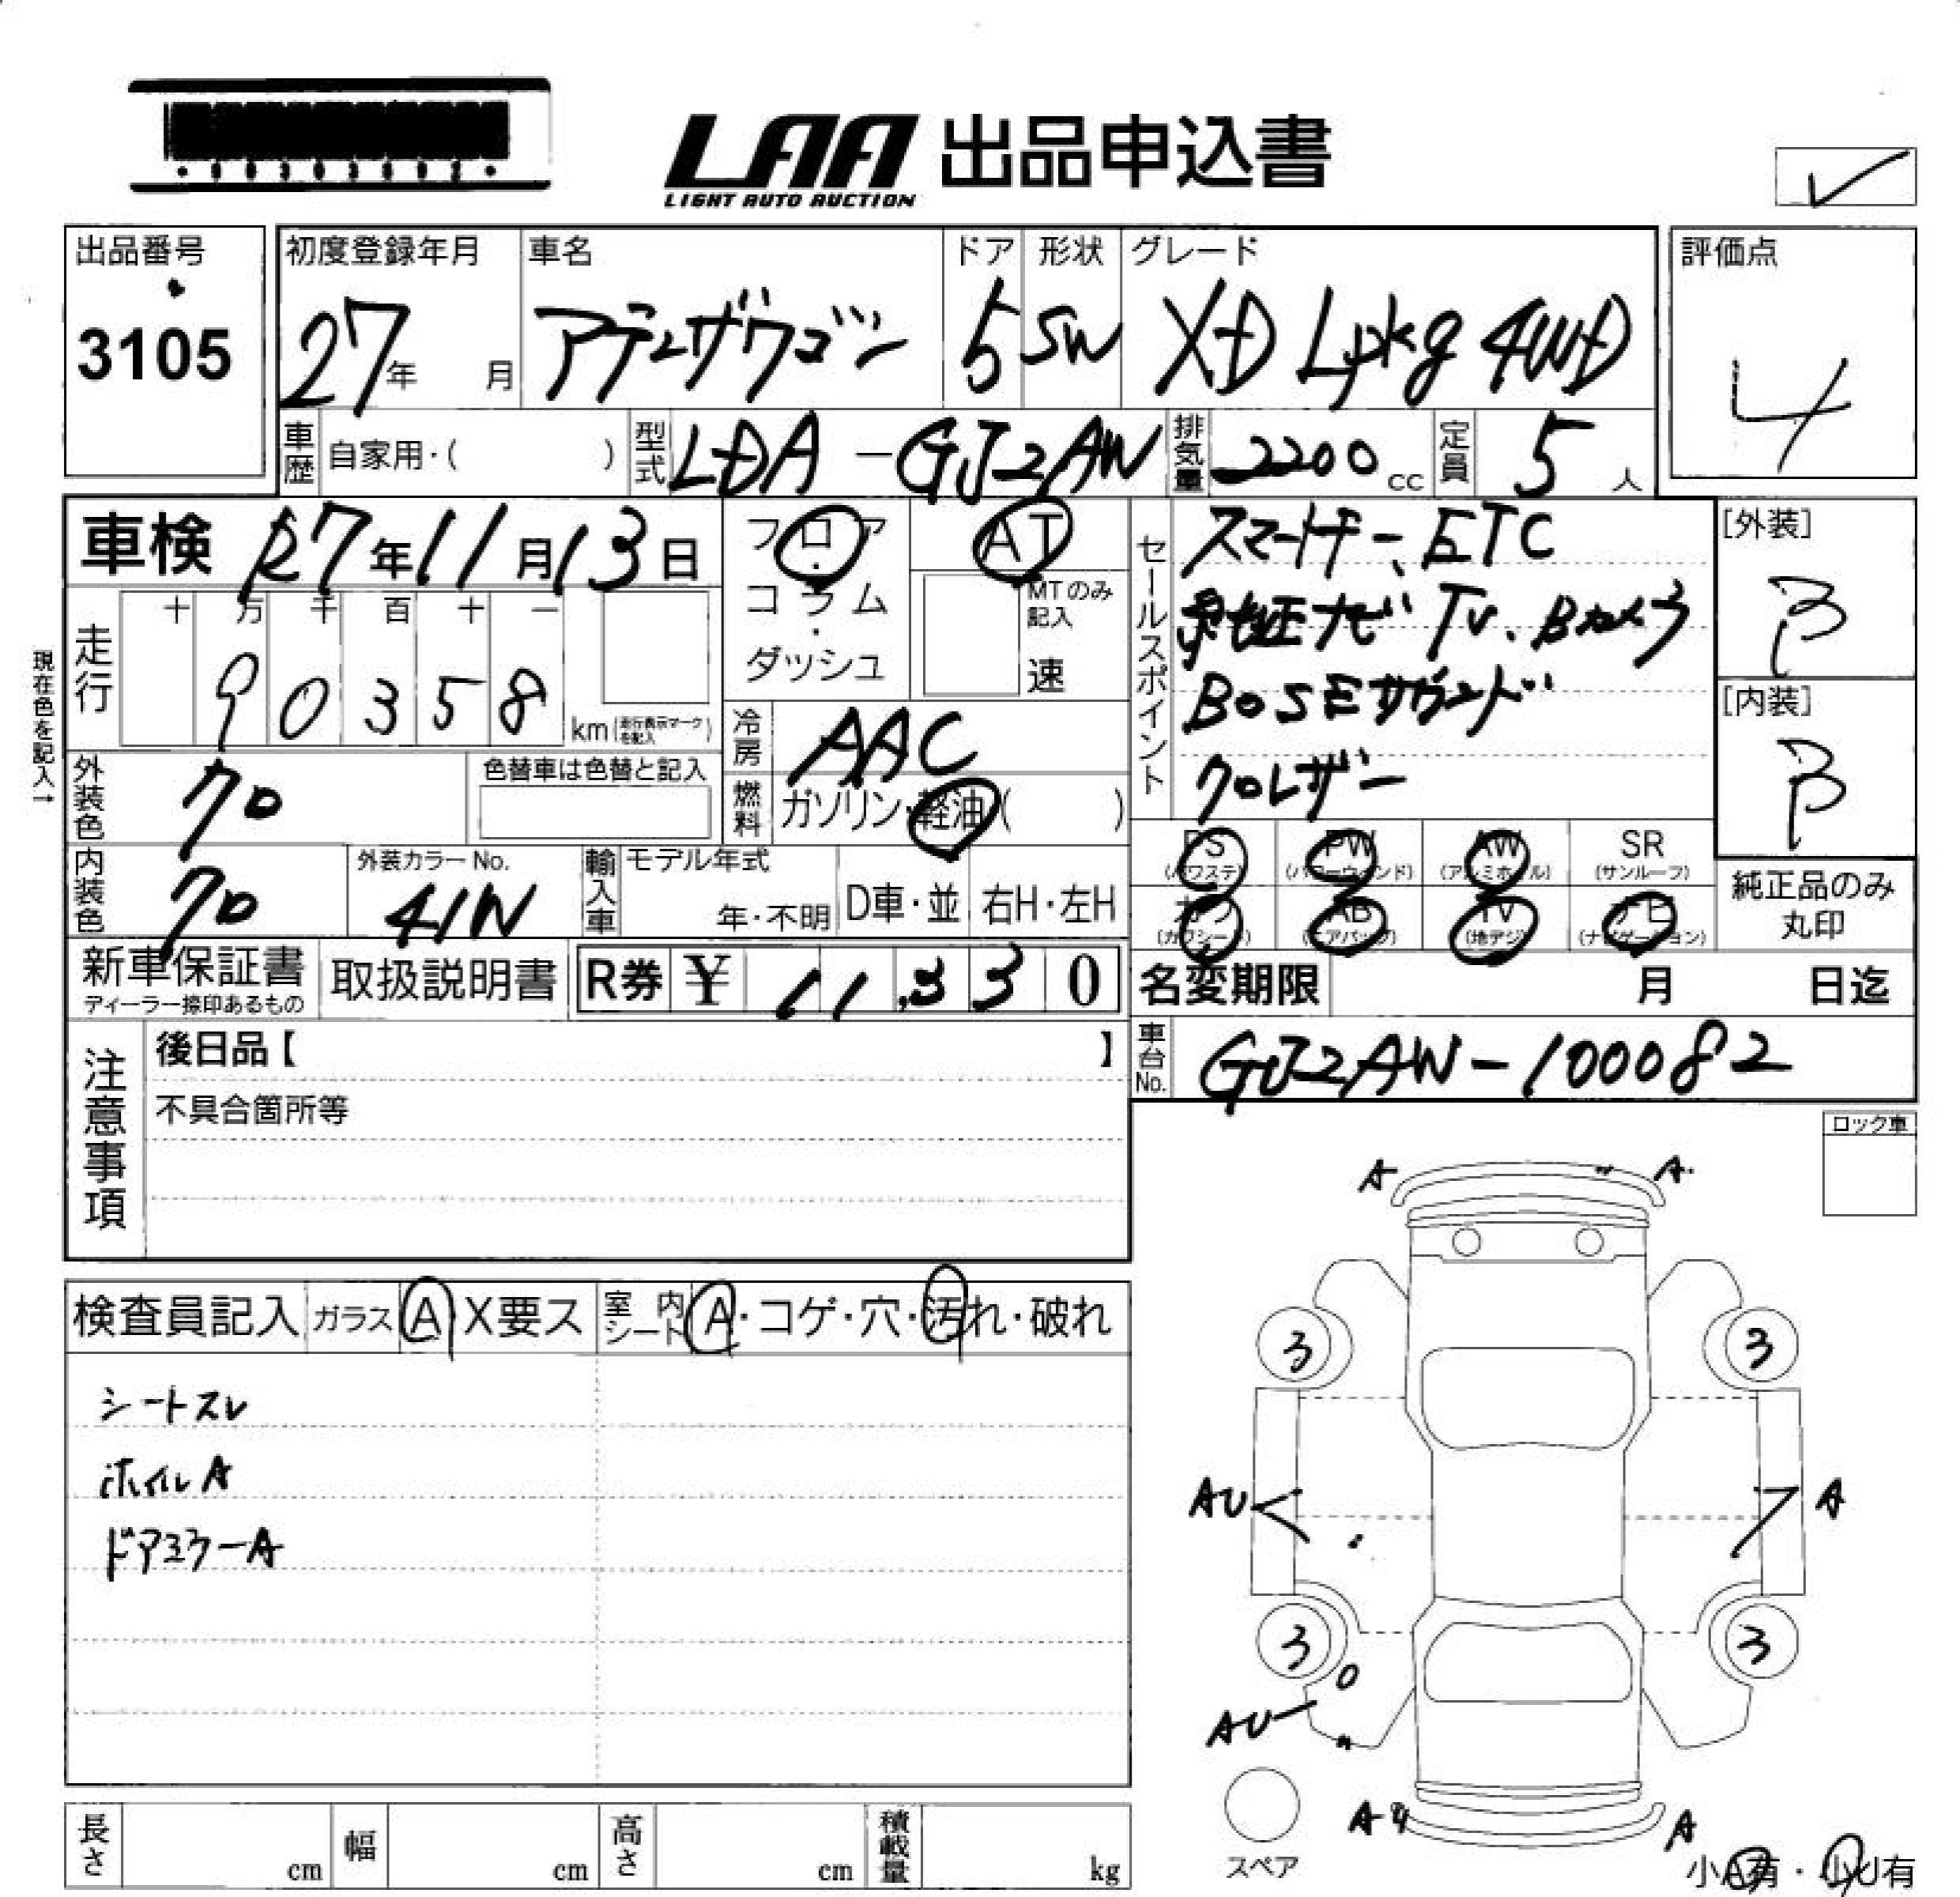 LAA 出品申込書
LIGHT AUTO AUCTION
出品番号
3105
初度登録年月
27年 月
車名
アテンザワゴン
ドア
5
形状
SW
グレード
XD Lpkg 4WD
評価点
4
車歴 自家用・( )
型式 LDA-GJ2AW
排気量 2200cc
定員 5人
車検 R7年11月13日
フロア・コラム・ダッシュ
AT
MTのみ記入
速
セールスポイント
スマートキー、ETC
純正ナビ TV、Bカメラ
BOSEサウンド
クロレザー
[外装]
B
[内装]
B
現在色を記入→
走行
十 万 千 百 十 一
9 0 3 5 8 km(走行表示マークを記入)
冷房 AAC
燃料 ガソリン・軽油( )
外装色 クロ
色替車は色替と記入
内装色 クロ
外装カラーNo.
41W
輸入車
モデル年式
年・不明
D車・並
右H・左H
PS (パワステ)
PW (パワーウィンド)
AW (アルミホイル)
SR (サンルーフ)
カワ (カワシート)
AB (エアバッグ)
TV (地デジ)
ナビ (ナビゲーション)
純正品のみ丸印
新車保証書
ディーラー捺印あるもの
取扱説明書
R券 ¥ 11,330
名変期限 月 日迄
車台No. GJ2AW-100082
注意事項
後日品【 】
不具合箇所等
ロック車
検査員記入 ガラス A・X要ス
室内シート A・コゲ・穴・汚れ・破れ
シートスレ
ホイルA
ドアミラーA
A A
3 3
AU A
3 3
AU
A A
スペア
小A有・小U有
長さ cm
幅 cm
高さ cm
積載量 kg